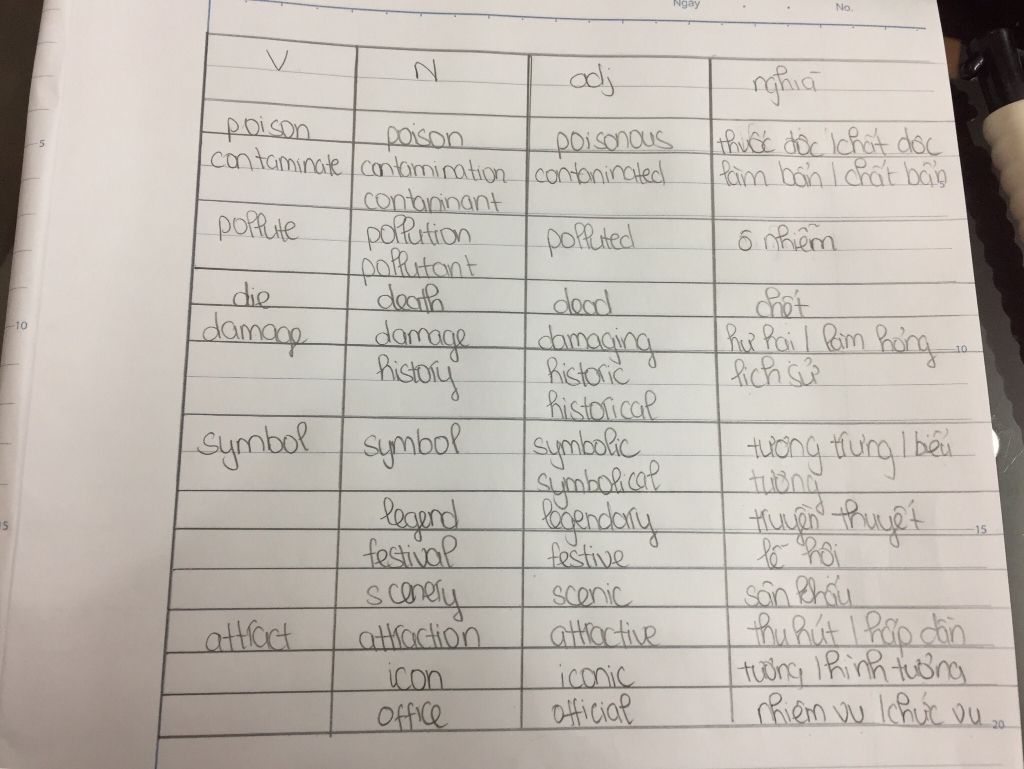 Ngày No.
V N adj nghĩa
poison poison poisonous thuốc độc / chất độc
5
contaminate contamination contaninated làm bẩn / chất bẩn
contaninant
pollute pollution polluted ô nhiễm
pollutant
die death dead chết
10
damage damage damaging hư hại / làm hỏng 10
history historic lịch sử
historical
symbol symbol symbolic tượng trưng / biểu
symbolical tượng
legend legendary truyền thuyết 15
festival festive lễ hội
scenery scenic sân khấu
attract attraction attractive thu hút / hấp dẫn
icon iconic tượng / hình tượng
office official nhiệm vụ / chức vụ 20